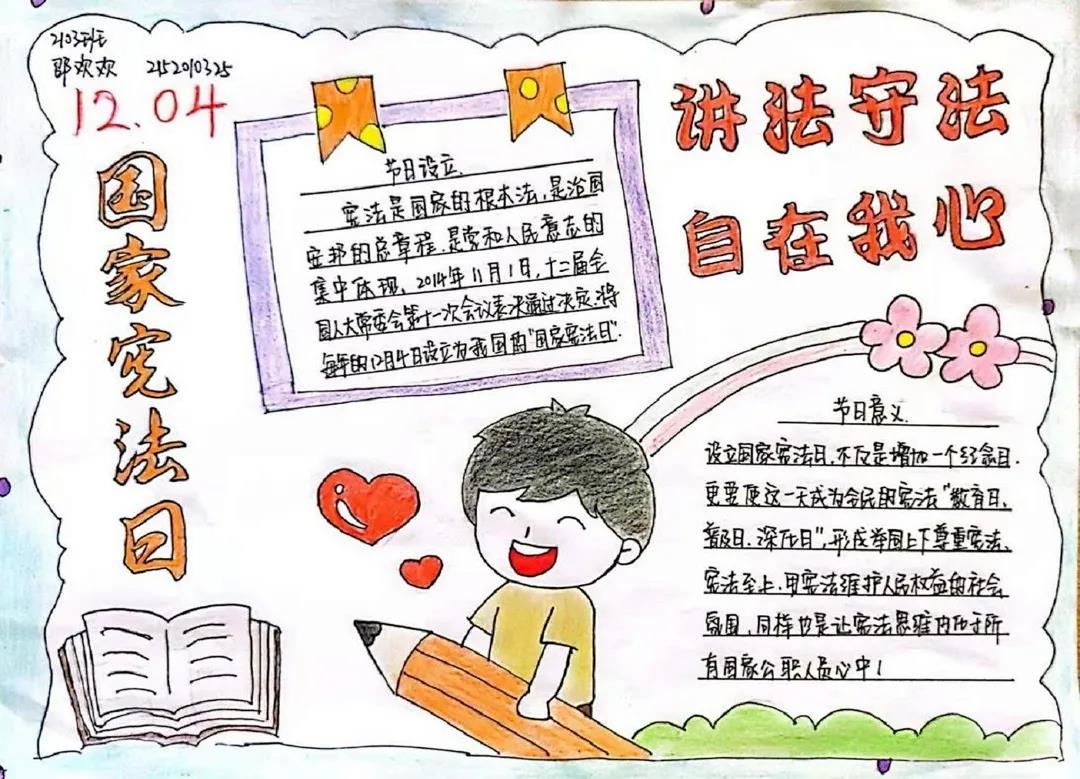 2103班
邵欢欢 2152010325
12.04
国家宪法日
讲法守法
自在我心
节日设立
宪法是国家的根本法,是治国
安邦的总章程,是党和人民意志的
集中体现,2014年11月1日,十二届全
国人大常委会第十一次会议表决通过决定,将
每年的12月4日设立为我国的“国家宪法日”.
节日意义
设立国家宪法日,不仅是增加一个纪念日,
更要使这一天成为全民的宪法“教育日、
普及日、深化日”,形成举国上下尊重宪法、
宪法至上、用宪法维护人民权益的社会
氛围,同样也是让宪法思维内化于所
有国家公职人员心中!